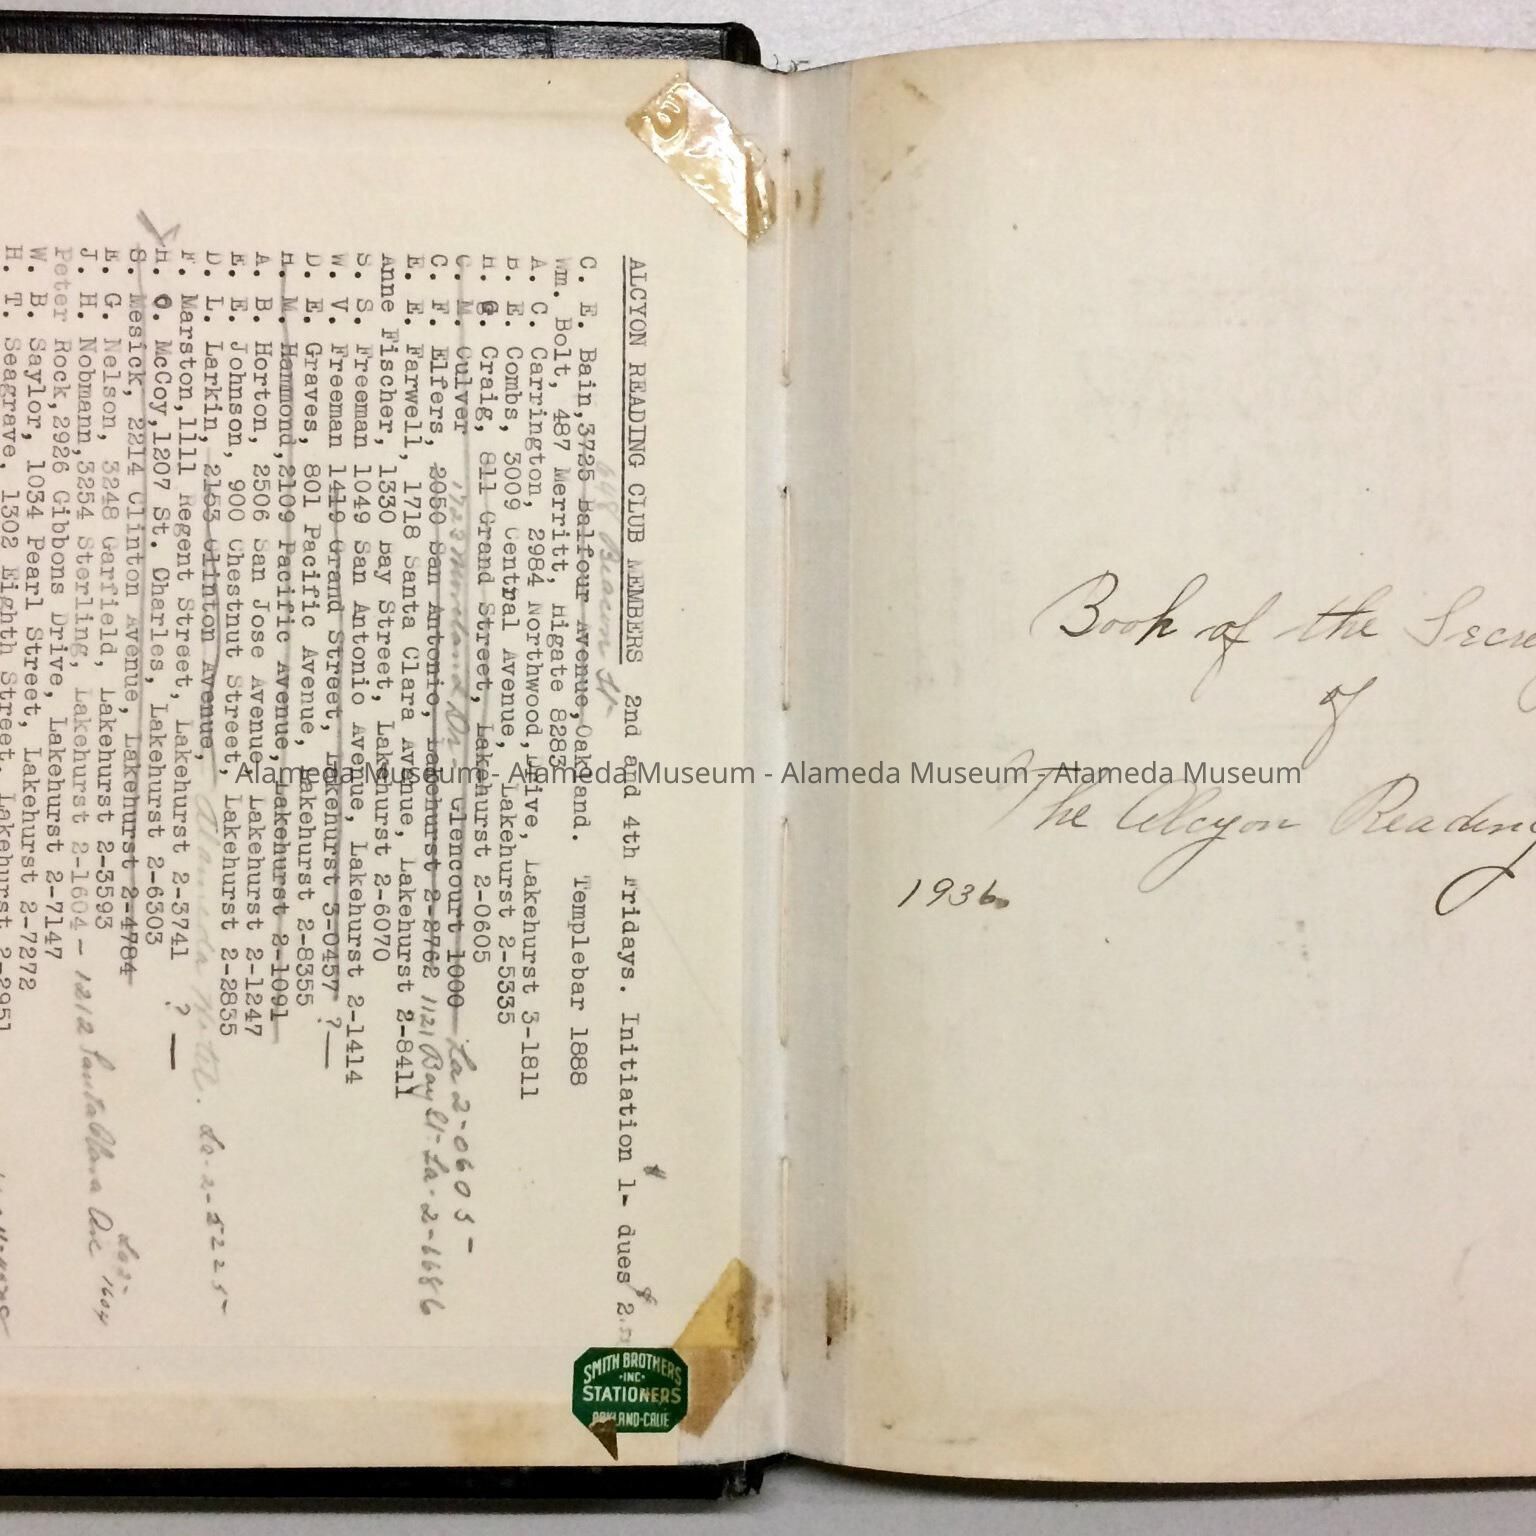 ALCYON READING CLUB MEMBERS 2nd and 4th Fridays. Initiation $1- dues $2.50
C. E. Bain,3725 Balfour Avenue,Oakland. Templebar 1888
648 Beacon St-
Wm. Bolt, 487 Merritt, Higate 8283
A. C. Carrington, 2984 Northwood,Drive, Lakehurst 3-1811
B. E. Combs, 3009 Central Avenue, Lakehurst 2-5335
H. G. Craig, 811 Grand Street, Lakehurst 2-0605
C. M. Culver 1723 Moreland Dr- Glencourt 1000 La 2-0605-
C. F. Elfers, 2050 San Antonio, Lakehurst 2-2762 1121 Bay St-La-2-6686
E. E. Farwell, 1718 Santa Clara Avenue, Lakehurst 2-8411
Anne Fischer, 1330 Bay Street, Lakehurst 2-6070
S. S. Freeman 1049 San Antonio Avenue, Lakehurst 2-1414
W. V. Freeman 1419 Grand Street, Lakehurst 3-0457 ?—
D. E. Graves, 801 Pacific Avenue, Lakehurst 2-8355
H. M. Hammond,2109 Pacific Avenue, Lakehurst 2-1091
A. B. Horton, 2506 San Jose Avenue, Lakehurst 2-1247
E. E. Johnson, 900 Chestnut Street, Lakehurst 2-2835
D. L. Larkin, 2153 Clinton Avenue, Alameda Hotel. La-2-5225-
F. Marston,1111 Regent Street, Lakehurst 2-3741 ? —
H. O. McCoy,1207 St. Charles, Lakehurst 2-6303
S. Mesick, 2214 Clinton Avenue, Lakehurst 2-4784
E. G. Nelson, 3248 Garfield, Lakehurst 2-3593
J. H. Nobmann,3254 Sterling, Lakehurst 2-1604 - 1212 Santa Clara Ave La 2-1604
Peter Rock,2926 Gibbons Drive, Lakehurst 2-7147
W. B. Saylor, 1034 Pearl Street, Lakehurst 2-7272
H. T. Seagrave, 1302 Eighth Street, Lakehurst 2-2951
SMITH BROTHERS
-INC-
STATIONERS
OAKLAND-CALIF
Book of the Secre
of
The Alcyon Reading
1936.
Alameda Museum - Alameda Museum - Alameda Museum - Alameda Museum